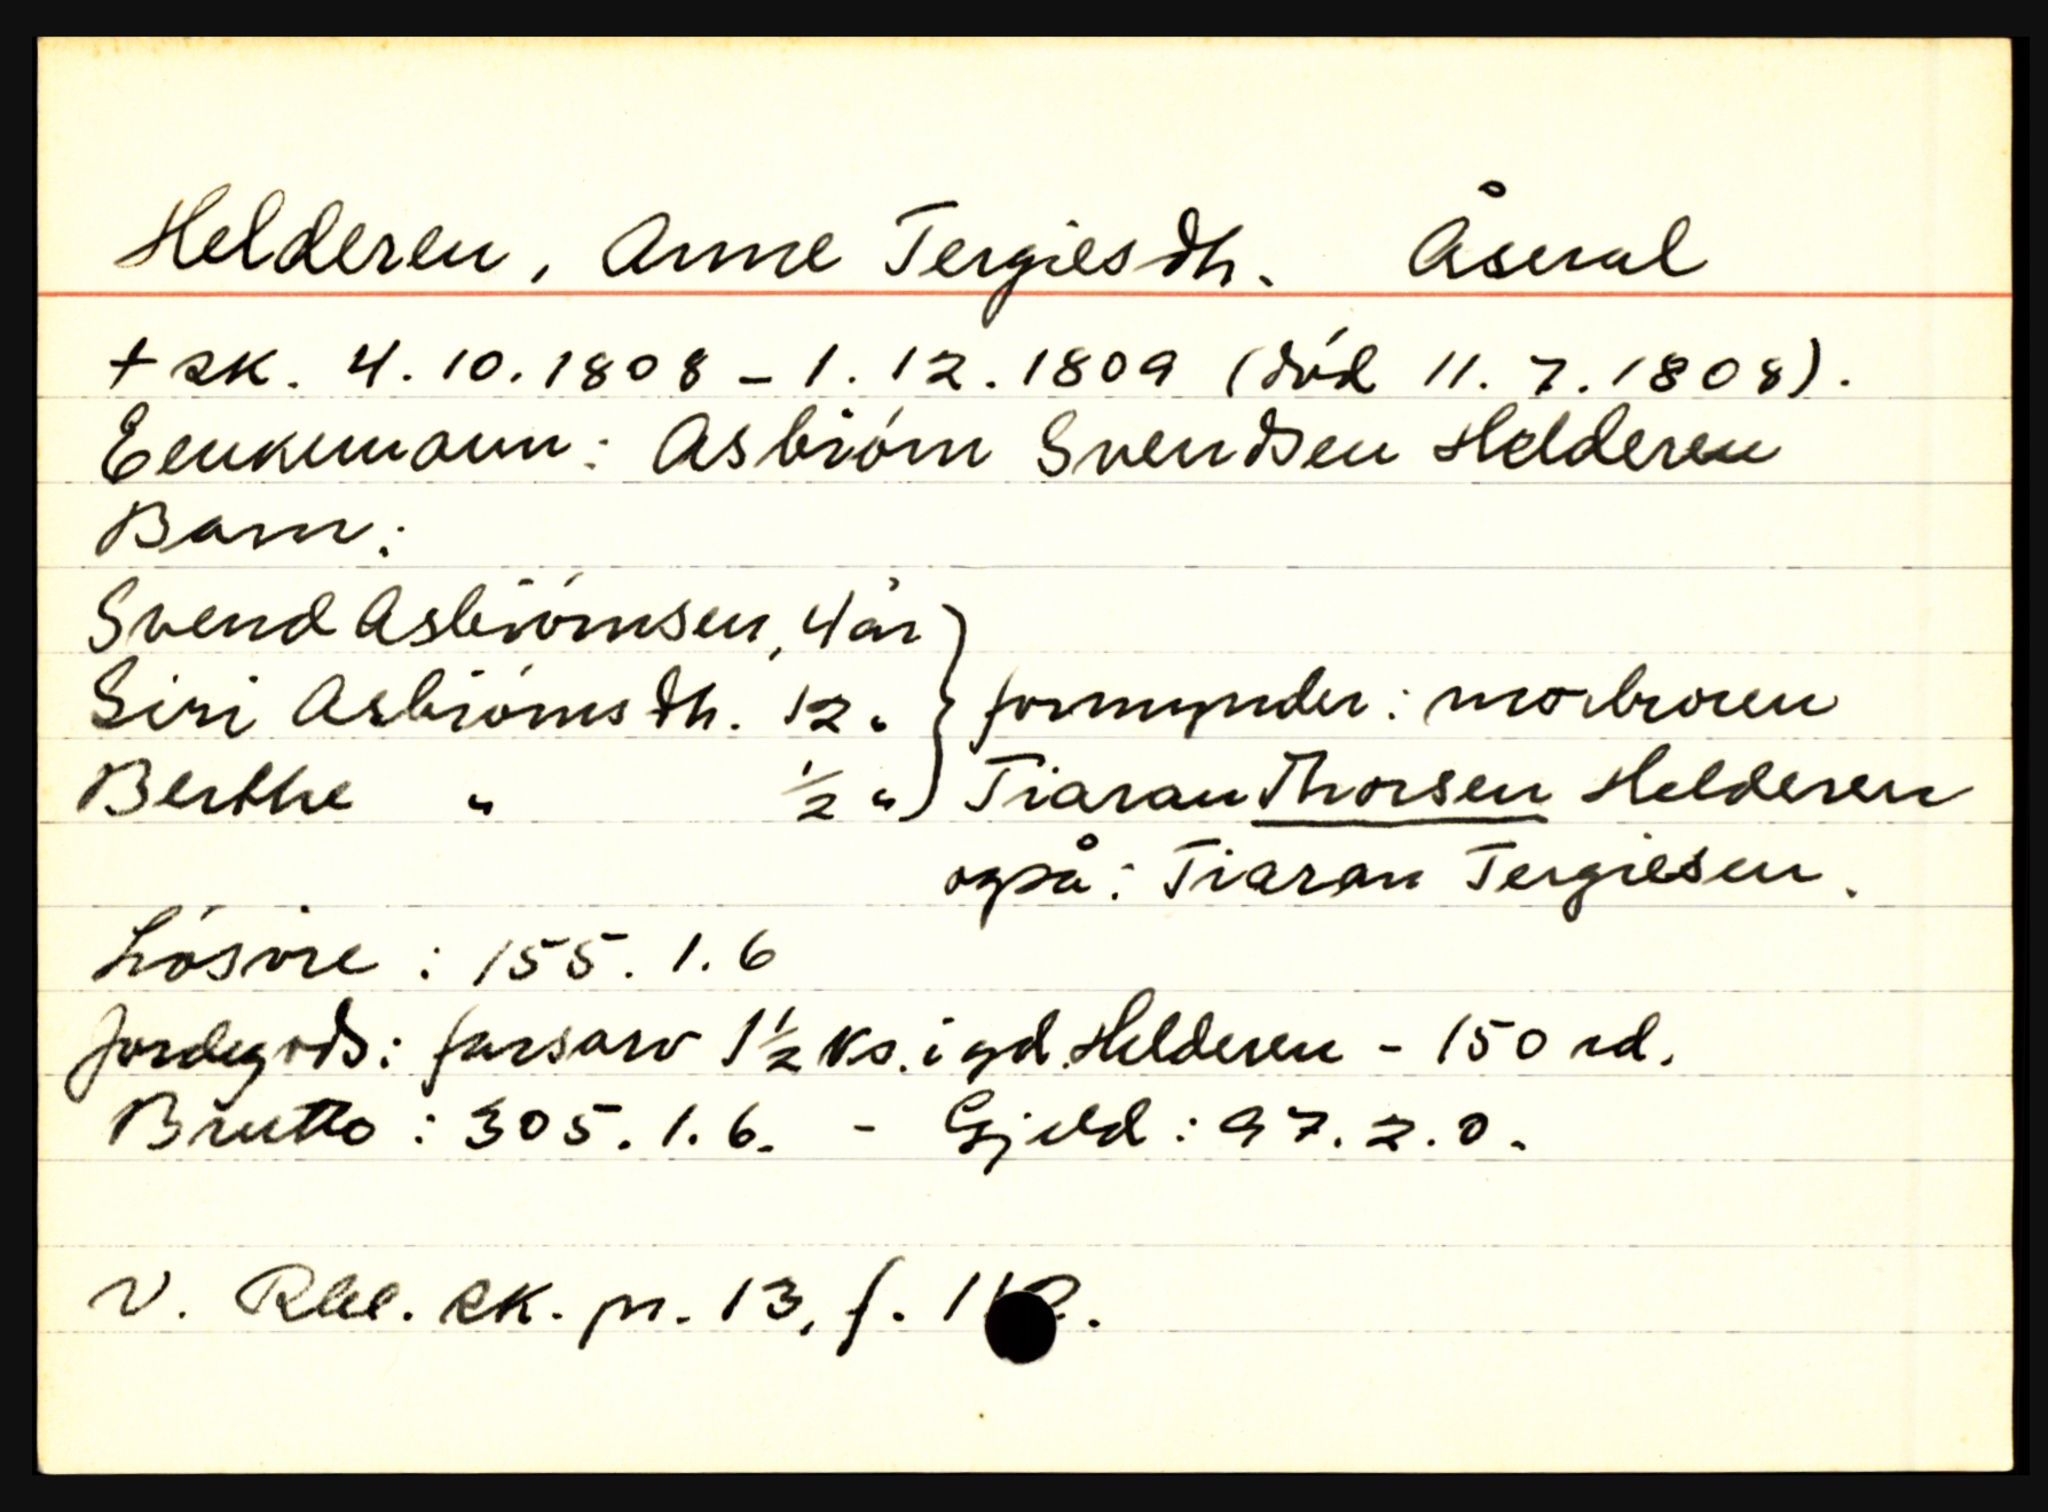 Helderen, Anne Tergiesdh. Åseral
+ sk. 4.10.1808 - 1.12.1809 (död 11.7.1808).
Eenkemann: Asbiörn Svendsen Helderen
Barn:
Svend Asbiörnsen, 4 år
Siri Asbiörnsdh. 12 "
Berthe " 1/2 "
formynder: morbroren
Tiaran Thorsen Helderen
også: Tiaran Tergiesen.
Lösöre: 155.1.6
Jordegods: farsarv 1 1/2 ks. i gd. Helderen - 150 rd.
Brutto: 305.1.6. - Gjeld: 97.2.0.
V. Rbl. sk. pr. 13, f.